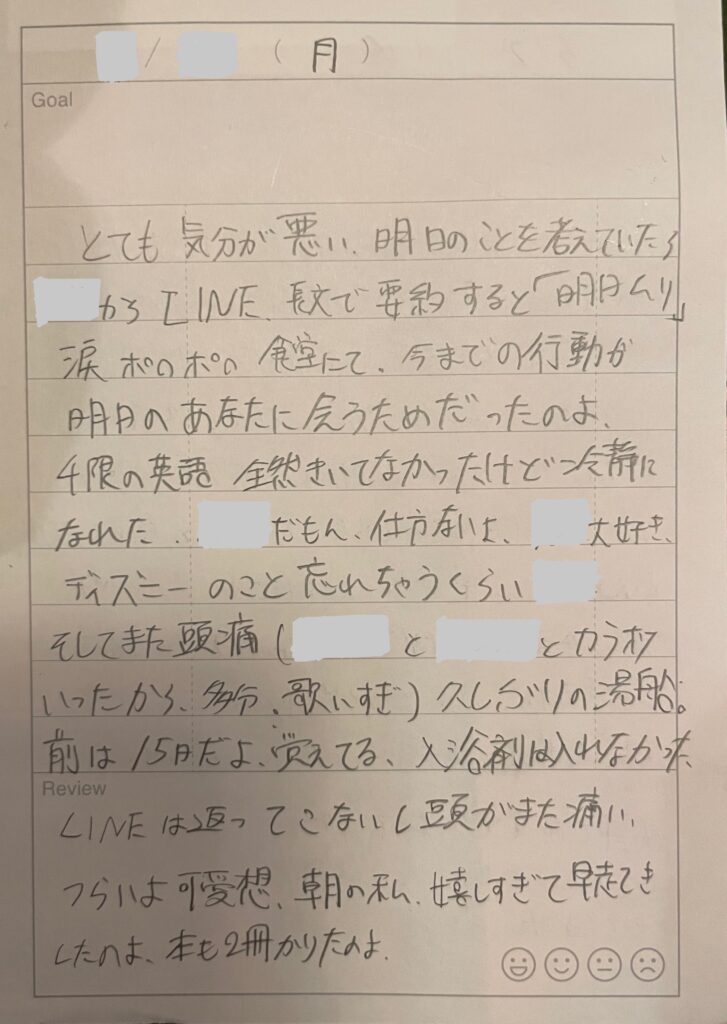 / （月）
Goal
とても 気分が悪い、明日のことを考えていたら
から LINE、長文で要約すると「明日ムリ」
涙 ポロポロ 食堂にて、今までの行動が
明日のあなたに会うためだったのよ、
4限の英語 全然きいてなかったけど冷静に
なれた、 だもん、仕方ないよ、 大好き、
ディズニーのこと忘れちゃうくらい
そしてまた頭痛( と とカラオケ
いったから、多分、歌いすぎ) 久しぶりの湯船。
前は15日だよ、覚えてる、入浴剤は入れなかった
Review
LINEは返ってこないし頭がまた痛い、
つらいよ可愛想、朝の私、嬉しすぎて早走てき
したのよ、本も2冊かりたのよ、